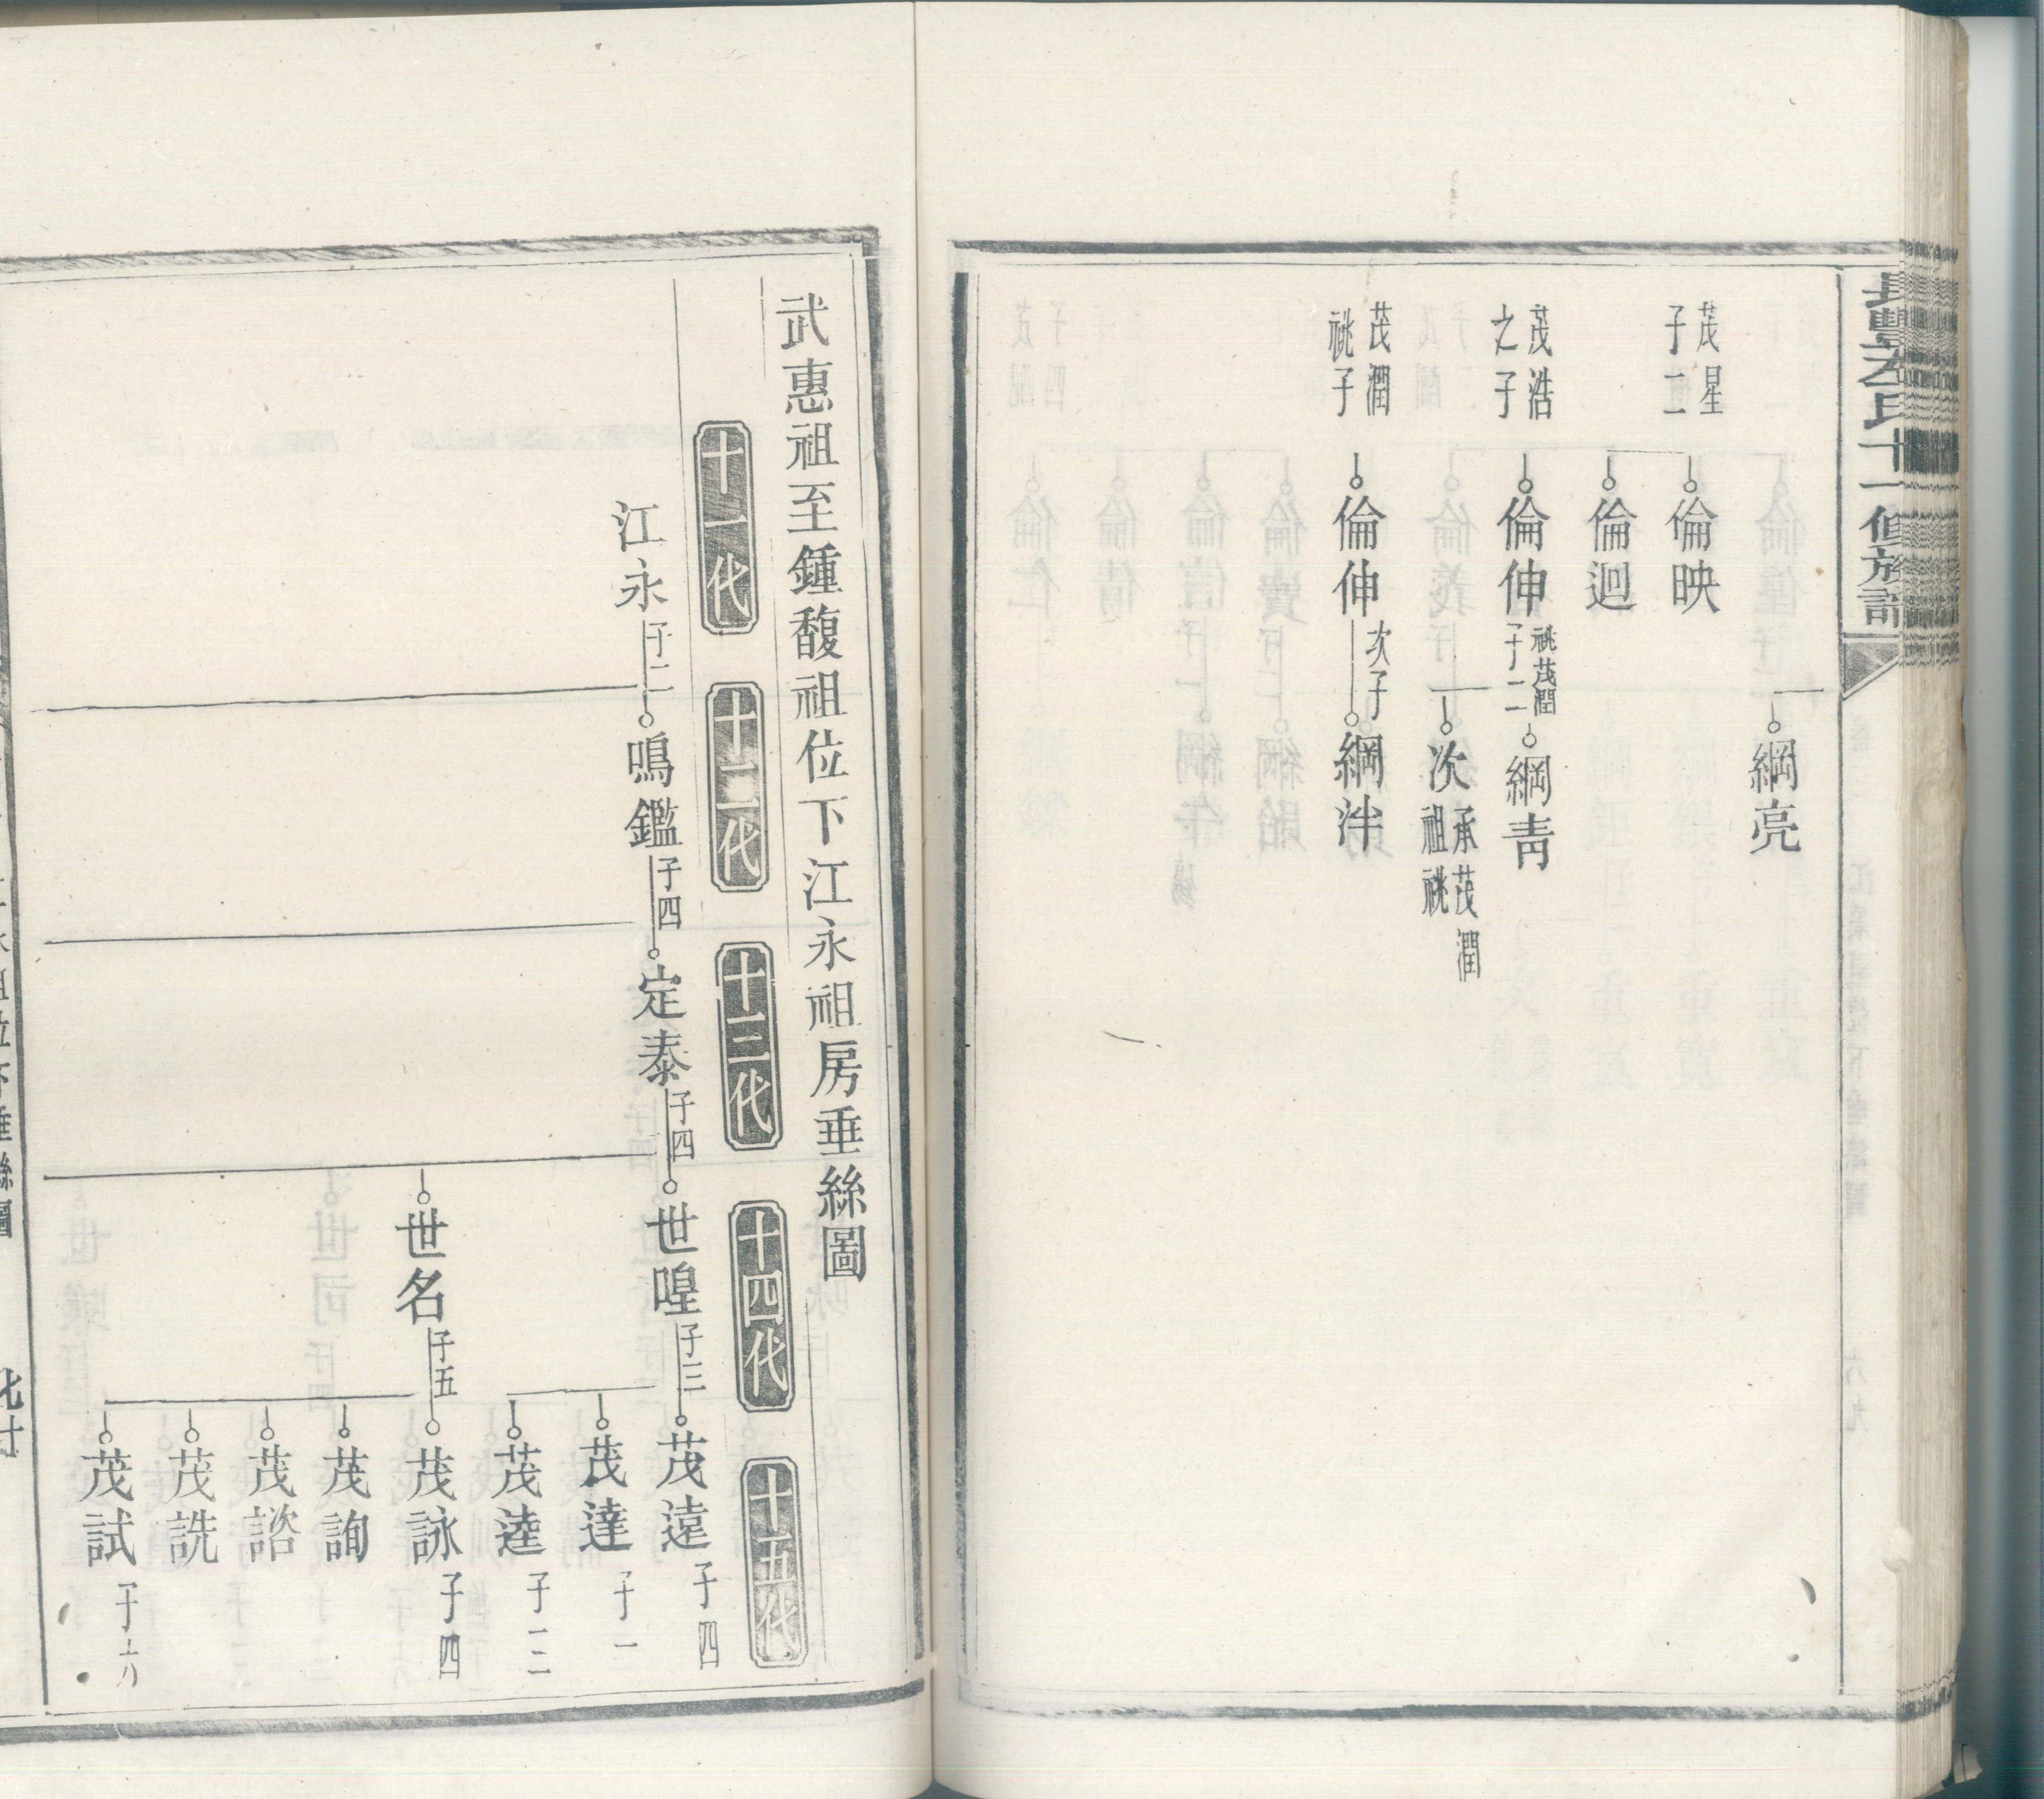 氏十一修族譜
綱亮
茂星
子二
倫映
倫迴
茂浩
之子
倫伸
祧茂潤
子二
綱青
次
承茂潤
祖祧
茂潤
祧子
倫伸
次子
綱泮
武惠祖至鍾馥祖位下江永祖房垂絲圖
十一代
十二代
十三代
十四代
十五代
江永
子二
鳴鑑
子四
定泰
子四
世喤
子三
茂遠
子四
茂達
子一
茂逵
子三
世名
子五
茂詠
子四
茂詢
茂諮
茂詵
茂試
子六